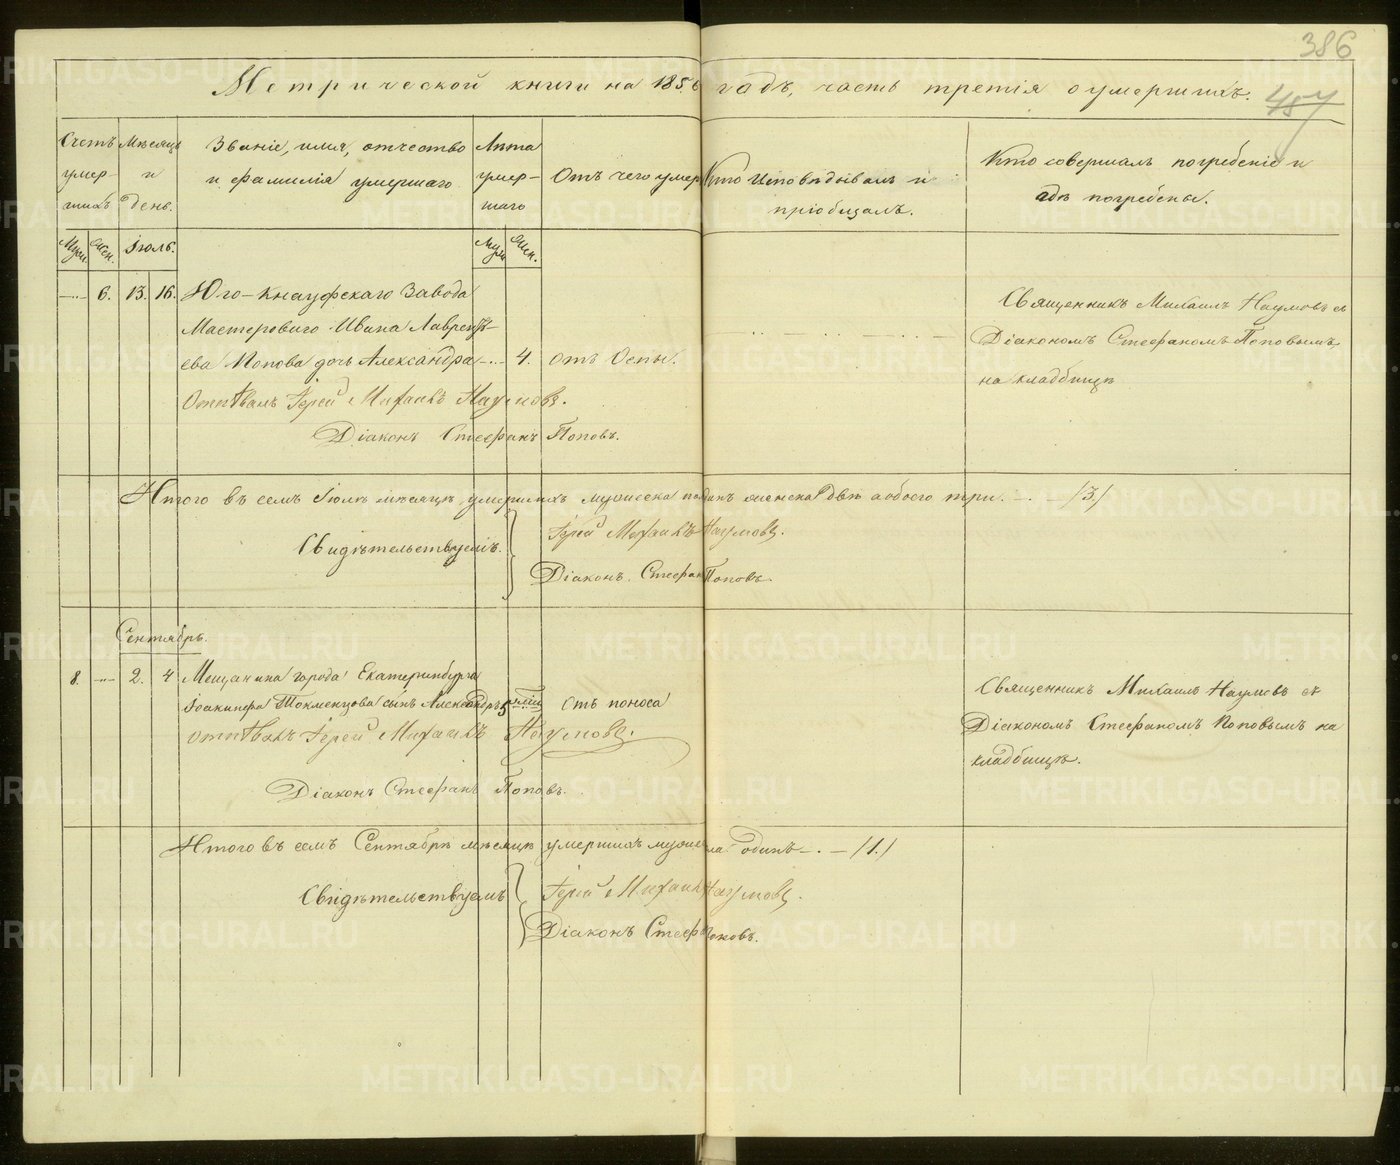 386
Метрической книги на 1856 годъ, часть третія о умершихъ.
457
Счетъ умершихъ
Мѣсяцъ и день.
Званіе, имя, отчество и фамилія умершаго.
Лѣта умершаго
Отъ чего умеръ
Кто исповѣдывалъ и пріобщалъ.
Кто совершалъ погребеніе и гдѣ погребены.
Муж. Жен. Іюль. Муж. Жен.
6. 13. 16. Юго-Кнауфскаго Завода
Мастероваго Ивана Лаврентьева
Попова дочь Александра 4. отъ Оспы.
Священникъ Михаилъ Наумовъ съ
Діакономъ Стефаномъ Поповымъ,
на кладбищѣ
Отпѣвалъ Іерей Михаилъ Наумовъ.
Діаконъ Стефанъ Поповъ.
Итого въ семъ Іюлѣ мѣсяцѣ умершихъ мужеска одинъ женска двѣ а обоего три. /3/
Свидѣтельствуемъ.
Іерей Михаилъ Наумовъ.
Діаконъ Стефанъ Поповъ.
Сентябрь.
8. 2. 4 Мещанина города Екатеринбурга
Іоакинфа Токменцова сынъ Александръ 5 отъ поноса
Священникъ Михаилъ Наумовъ съ
Діакономъ Стефаномъ Поповымъ на
кладбищѣ.
Отпѣвалъ Іерей Михаилъ Наумовъ.
Діаконъ Стефанъ Поповъ.
Итого въ семъ Сентябрѣ мѣсяцѣ умершихъ мужеска одинъ /1./
Свидѣтельствуемъ
Іерей Михаилъ Наумовъ.
Діаконъ Стефанъ Поповъ.
METRIKI.GASO-URAL.RU